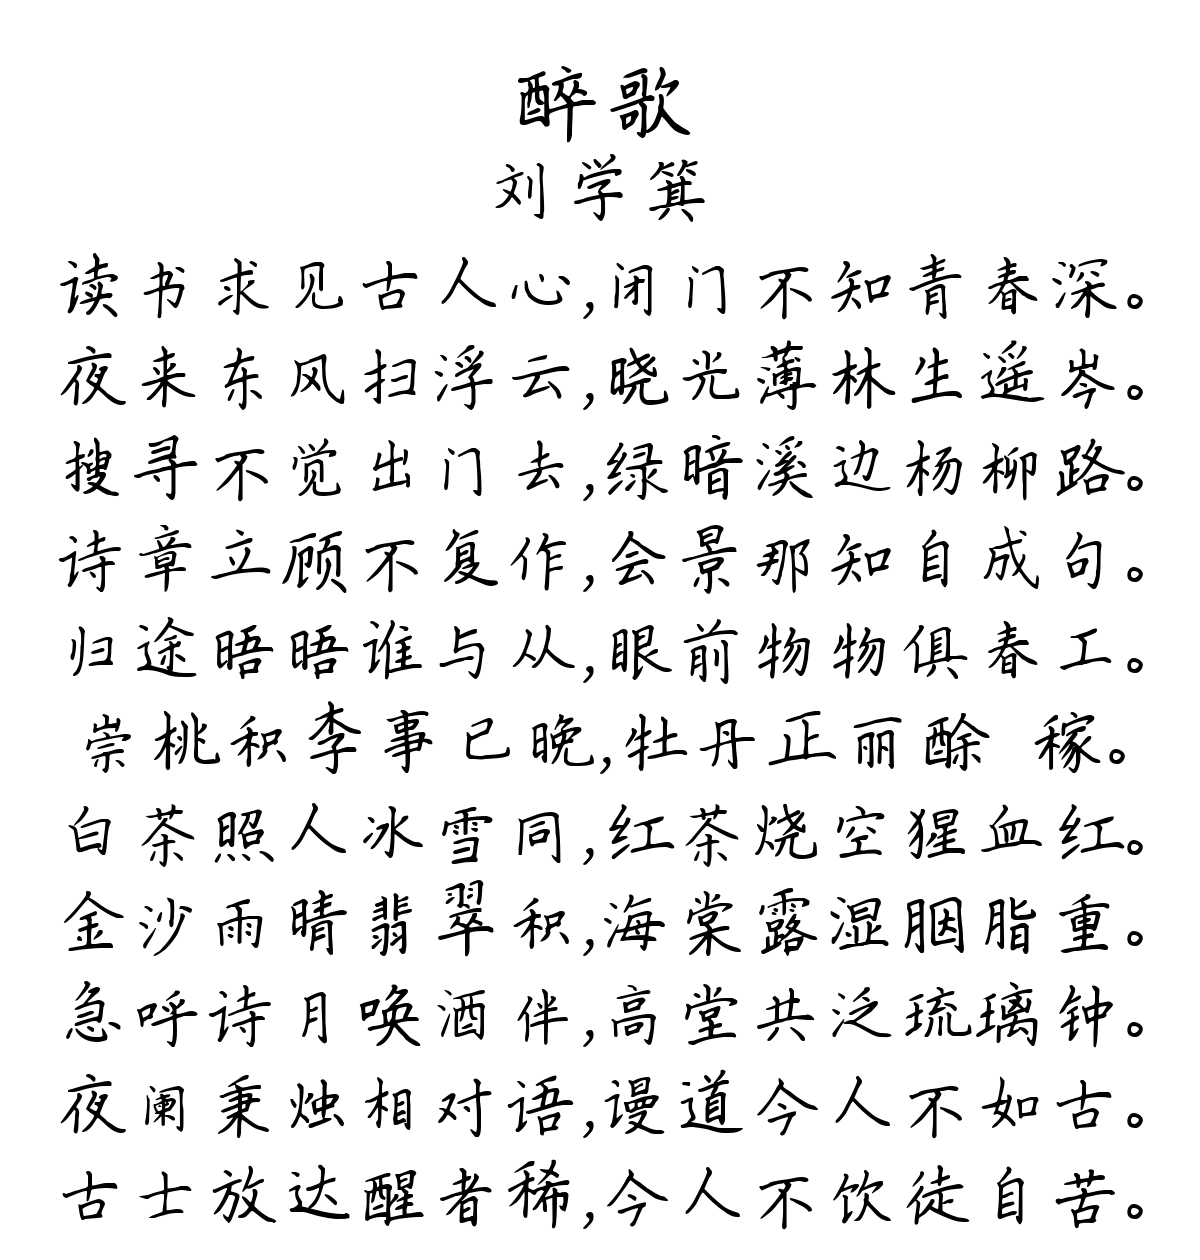 醉歌
刘学箕
读书求见古人心,闭门不知青春深。
夜来东风扫浮云,晓光薄林生遥岑。
搜寻不觉出门去,绿暗溪边杨柳路。
诗章立顾不复作,会景那知自成句。
归途晤晤谁与从,眼前物物俱春工。
崇桃积李事已晚,牡丹正丽酴 稼。
白茶照人冰雪同,红茶烧空猩血红。
金沙雨晴翡翠积,海棠露湿胭脂重。
急呼诗月唤酒伴,高堂共泛琉璃钟。
夜阑秉烛相对语,谩道今人不如古。
古士放达醒者稀,今人不饮徒自苦。